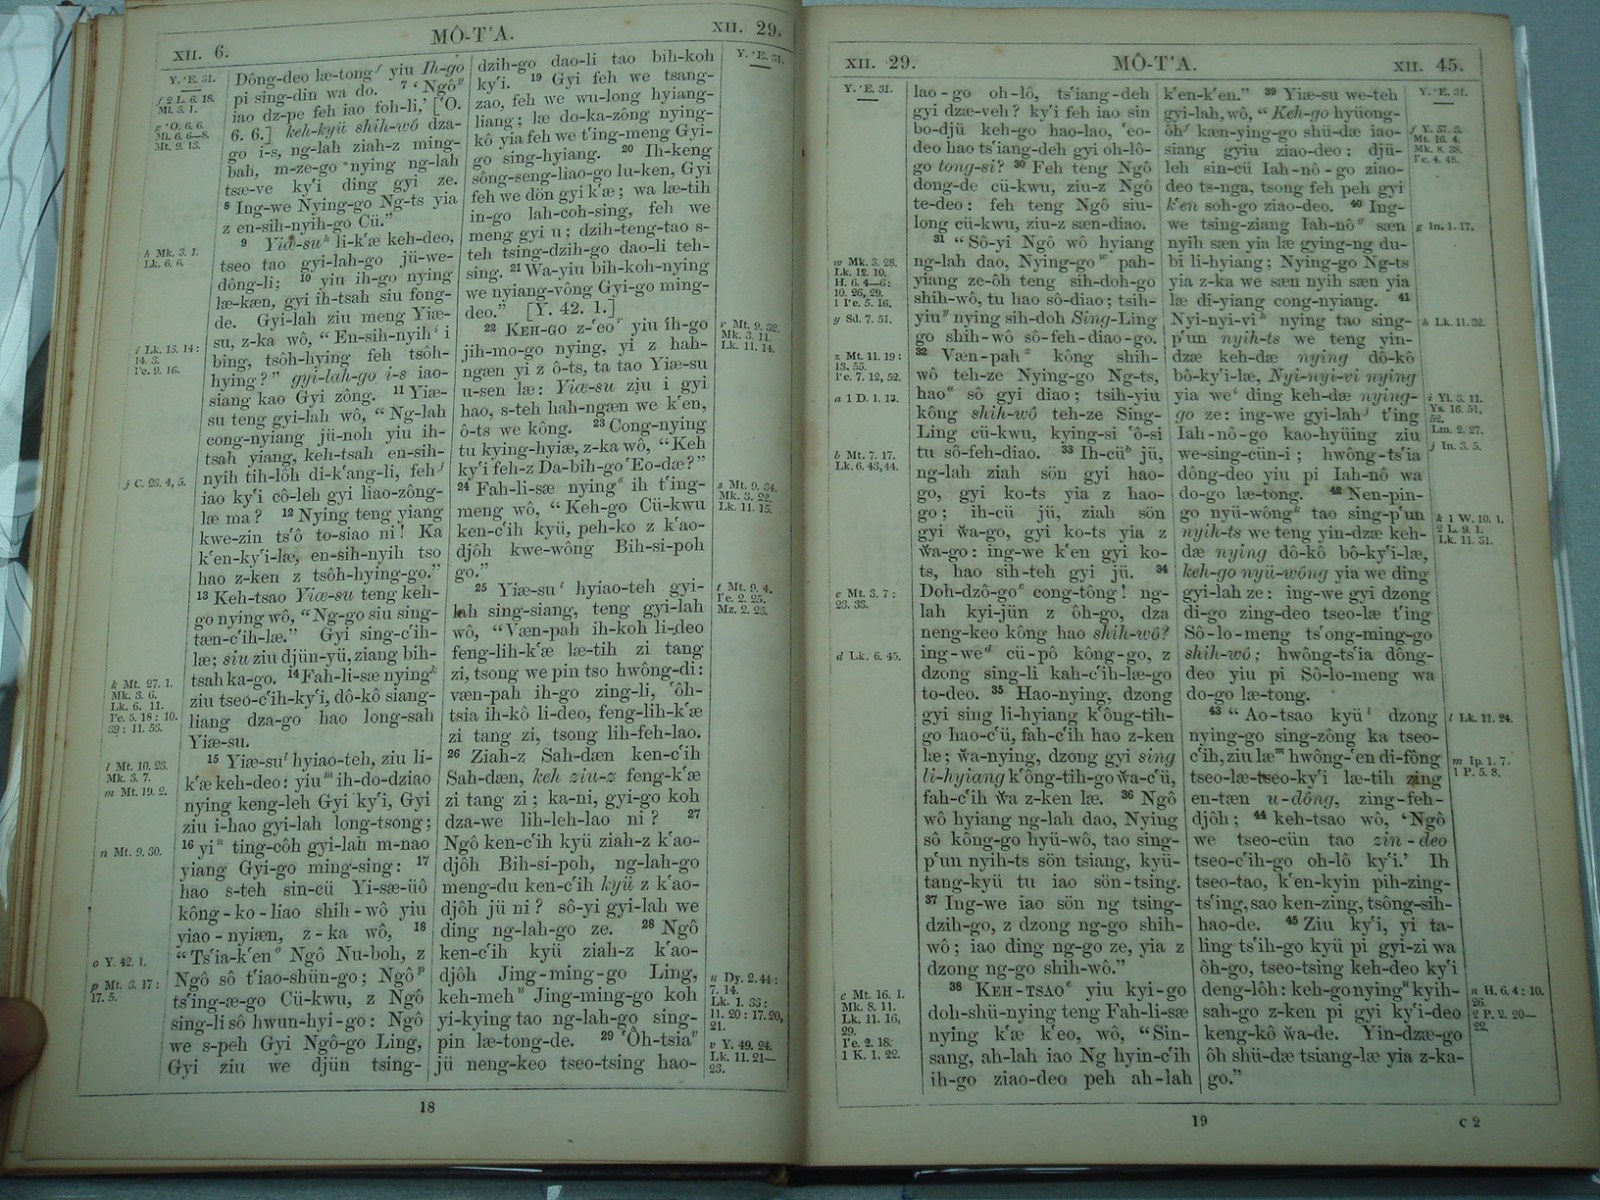 XII. 6.
MÔ-T'A.
XII. 29.
Y. 'E. 31.
f 2 L. 6. 18.
Mt. 3. 1.
g 'O. 6. 6.
Mi. 6. 6—8.
Mt. 9. 13.
h Mk. 3. 1.
Lk. 6. 6.
i Lk. 13. 14:
14. 3.
j C. 23. 4, 5.
k Mt. 27. 1.
Mk. 3. 6.
Lk. 6. 11.
l Mt. 10. 23.
Mk. 3. 7.
m Mt. 19. 2.
n Mt. 9. 30.
o Y. 42. 1.
p Mt. 3. 17:
17. 5.
Dông-deo læ-tong f yiu Ih-go
pi sing-din wa do. 7 ‘Ngô g
iao dz-pe feh iao foh-li,’ [‘O.
6. 6.] keh-kyü shih-wô dza-
go i-s, ng-lah ziah-z ming-
bah, m-ze-go nying ng-lah
tsæ-ve ky'i ding gyi ze.
8 Ing-we Nying-go Ng-ts yia
z en-sih-nyih-go Cü.”
9 Yiæ-su h li-k'æ keh-deo,
tseo tao gyi-lah-go jü-we-
dông-li; 10 yiu ih-go nying
læ-kæn, gyi ih-tsah siu fong-
de. Gyi-lah ziu meng Yiæ-
su, z-ka wô, “En-sih-nyih i i
bing, tsôh-hying feh tsôh-
hying?” gyi-lah-go i-s iao-
siang kao Gyi zông. 11 Yiæ-
su teng gyi-lah wô, “Ng-lah
cong-nyiang jü-noh yiu ih-
tsah yiang, keh-tsah en-sih-
nyih tih-lôh di-k'ang-li, feh j
iao ky'i cô-leh gyi liao-zông-
læ ma? 12 Nying teng yiang
kwe-zin ts'ô to-siao ni! Ka
k'en-ky'i-læ, en-sih-nyih tso
hao z-ken z tsôh-hying-go.”
13 Keh-tsao Yiæ-su teng keh-
go nying wô, “Ng-go siu sing-
tæn-c'ih-læ.” Gyi sing-c'ih-
læ; siu ziu djün-yü, ziang bih-
tsah ka-go. 14 Fah-li-sæ nying k
ziu tseo-c'ih-ky'i, dô-kô siang-
liang dza-go hao long-sah
Yiæ-su.
15 Yiæ-su l hyiao-teh, ziu li-
k'æ keh-deo: yiu m ih-do-dziao
nying keng-leh Gyi ky'i, Gyi
ziu i-hao gyi-lah long-tsong;
16 yi n ting-côh gyi-lah m-nao
yiang Gyi-go ming-sing: 17
hao s-teh sin-cü Yi-sæ-üô
kông-ko-liao shih-wô yiu
yiao-nyiæn, z-ka wô, 18
“Ts'ia-k'en o Ngô Nu-boh, z
Ngô sô t'iao-shün-go; Ngô p
ts'ing-æ-go Cü-kwu, z Ngô
sing-li sô hwun-hyi-go: Ngô
we s-peh Gyi Ngô-go Ling,
Gyi ziu we djün tsing-
dzih-go dao-li tao bih-koh
ky'i. 19 Gyi feh we tsang-
zao, feh we wu-long hyiang-
liang; læ do-ka-zông nying-
kô yia feh we t'ing-meng Gyi-
go sing-hyiang. 20 Ih-keng
sông-seng-liao-go lu-ken, Gyi
feh we dön gyi k'æ; wa læ-tih
in-go lah-coh-sing, feh we
meng gyi u; dzih-teng-tao s-
teh tsing-dzih-go dao-li teh-
sing. 21 Wa-yiu bih-koh-nying
we nyiang-vông Gyi-go ming-
deo.” [Y. 42. 1.]
22 KEH-GO z-'eo r yiu ih-go
jih-mo-go nying, yi z hah-
ngæn yi z ô-ts, ta tao Yiæ-su
u-sen læ: Yiæ-su ziu i gyi
hao, s-teh hah-ngæn we k'en,
ô-ts we kông. 23 Cong-nying
tu kying-hyiæ, z-ka wô, “Keh
ky'i feh-z Da-bih-go 'Eo-dæ?”
24 Fah-li-sæ nying s ih t'ing-
meng wô, “Keh-go Cü-kwu
ken-c'ih kyü, peh-ko z k'ao-
djôh kwe-wông Bih-si-poh
go.”
25 Yiæ-su t hyiao-teh gyi-
lah sing-siang, teng gyi-lah
wô, “Væn-pah ih-koh li-deo
feng-lih-k'æ læ-tih zi tang
zi, tsong we pin tso hwông-di:
væn-pah ih-go zing-li, 'ôh-
tsia ih-kô li-deo, feng-lih-k'æ
zi tang zi, tsong lih-feh-lao.
26 Ziah-z Sah-dæn ken-c'ih
Sah-dæn, keh ziu-z feng-k'æ
zi tang zi; ka-ni, gyi-go koh
dza-we lih-leh-lao ni? 27
Ngô ken-c'ih kyü ziah-z k'ao-
djôh Bih-si-poh, ng-lah-go
meng-du ken-c'ih kyü z k'ao-
djôh jü ni? sô-yi gyi-lah we
ding ng-lah-go ze. 28 Ngô
ken-c'ih kyü ziah-z k'ao-
djôh Jing-ming-go Ling,
keh-meh u Jing-ming-go koh
yi-kying tao ng-lah-go sing-
pin læ-tong-de. 29 'Ôh-tsia v
jü neng-keo tseo-tsing hao-
Y. 'E. 31.
r Mt. 9. 32.
Mk. 3. 11.
Lk. 11. 14.
s Mt. 9. 34.
Mk. 3. 22.
Lk. 11. 15.
t Mt. 9. 4.
Mz. 2. 23.
u Dy. 2. 44:
7. 14.
Lk. 1. 33:
11. 20: 17. 20,
21.
v Y. 49. 24.
Lk. 11. 21—
23.
18
XII. 29.
MÔ-T'A.
XII. 45.
Y. 'E. 31.
w Mk. 3. 28.
Lk. 12. 10.
H. 6. 4—6:
10. 26, 29.
y Sd. 7. 51.
z Mt. 11. 19:
13. 55.
a 1 D. 1. 13.
b Mt. 7. 17.
Lk. 6. 43, 44.
c Mt. 3. 7:
23. 33.
d Lk. 6. 45.
e Mt. 16. 1.
Mk. 8. 11.
Lk. 11. 16,
29.
1 K. 1. 22.
lao-go oh-lô, ts'iang-deh
gyi dzæ-veh? ky'i feh iao sin
bo-djü keh-go hao-lao, 'eo-
deo hao ts'iang-deh gyi oh-lô-
go tong-si? 30 Feh teng Ngô
dong-de cü-kwu, ziu-z Ngô
te-deo: feh teng Ngô siu-
long cü-kwu, ziu-z sæn-diao.
31 “Sô-yi Ngô wô hyiang
ng-lah dao, Nying-go w pah-
yiang ze-ôh teng sih-doh-go
shih-wô, tu hao sô-diao; tsih-
yiu y nying sih-doh Sing-Ling
go shih-wô sô-feh-diao-go.
32 Væn-pah z kông shih-
wô teh-ze Nying-go Ng-ts,
hao a sô gyi diao; tsih-yiu
kông shih-wô teh-ze Sing-
Ling cü-kwu, kying-si 'ô-si
tu sô-feh-diao. 33 Ih-cü b jü,
ng-lah ziah sön gyi hao-
go, gyi ko-ts yia z hao-
go; ih-cü jü, ziah sön
gyi ẘa-go, gyi ko-ts yia z
ẘa-go: ing-we k'en gyi ko-
ts, hao sih-teh gyi jü. 34
Doh-dzô-go c cong-tông! ng-
lah kyi-jün z ôh-go, dza
neng-keo kông hao shih-wô?
ing-we d cü-pô kông-go, z
dzong sing-li kah-c'ih-læ-go
to-deo. 35 Hao-nying, dzong
gyi sing li-hyiang k'ông-tih-
go hao-c'ü, fah-c'ih hao z-ken
læ; ẘa-nying, dzong gyi sing
li-hyiang k'ông-tih-go ẘa-c'ü,
fah-c'ih ẘa z-ken læ. 36 Ngô
wô hyiang ng-lah dao, Nying
sô kông-go hyü-wô, tao sing-
p'un nyih-ts sön tsiang, kyü-
tang-kyü tu iao sön-tsing.
37 Ing-we iao sön ng tsing-
dzih-go, z dzong ng-go shih-
wô; iao ding ng-go ze, yia z
dzong ng-go shih-wô.”
38 KEH-TSAO e yiu kyi-go
doh-shü-nying teng Fah-li-sæ
nying k'æ k'eo, wô, “Sin-
sang, ah-lah iao Ng hyin-c'ih
ih-go ziao-deo peh ah-lah
k'en-k'en.” 39 Yiæ-su we-teh
gyi-lah, wô, “Keh-go hyüong-
ôh f kæn-ying-go shü-dæ iao-
siang gyiu ziao-deo: djü-
leh sin-cü Iah-nô-go ziao-
deo ts-nga, tsong feh peh gyi
k'en soh-go ziao-deo. 40 Ing-
we tsing-ziang Iah-nô g sæn
nyih sæn yia læ gying-ng du-
bi li-hyiang; Nying-go Ng-ts
yia z-ka we sæn nyih sæn yia
læ di-yiang cong-nyiang. 41
Nyi-nyi-vi h nying tao sing-
p'un nyih-ts we teng yin-
dzæ keh-dæ nying dô-kô
bô-ky'i-læ, Nyi-nyi-vi nying
yia we i ding keh-dæ nying-
go ze: ing-we gyi-lah j t'ing
Iah-nô-go kao-hyüing ziu
we-sing-cün-i; hwông-ts'ia
dông-deo yiu pi Iah-nô wa
do-go læ-tong. 42 Nen-pin-
go nyü-wông k tao sing-p'un
nyih-ts we teng yin-dzæ keh-
dæ nying dô-kô bô-ky'i-læ,
keh-go nyü-wông yia we ding
gyi-lah ze: ing-we gyi dzong
di-go zing-deo tseo-læ t'ing
Sô-lo-meng ts'ong-ming-go
shih-wô; hwông-ts'ia dông-
deo yiu pi Sô-lo-meng wa
do-go læ-tong.
43 “Ao-tsao kyü l dzong
nying-go sing-zông ka tseo-
c'ih, ziu læ m hwông-'en di-fông
tseo-læ-tseo-ky'i læ-tih zing
en-tæn u-dông, zing-feh-
djôh; 44 keh-tsao wô, ‘Ngô
we tseo-cün tao zin-deo
tseo-c'ih-go oh-lô ky'i.’ Ih
tseo-tao, k'en-kyin pih-zing-
ts'ing, sao ken-zing, tsông-sih-
hao-de. 45 Ziu ky'i, yi ta-
ling ts'ih-go kyü pi gyi-zi wa
ôh-go, tseo-tsing keh-deo ky'i
deng-lôh: keh-go nying n kyih-
sah-go z-ken pi gyi ky'i-deo
keng-kô ẘa-de. Yin-dzæ-go
ôh shü-dæ tsiang-læ yia z-ka-
go.”
Y. 'E. 31.
f Y. 57. 3.
Mt. 16. 4.
Mk. 8. 38.
g In. 1. 17.
h Lk. 11. 32.
i Yl. 3. 11.
Ys. 16. 51,
52.
Lm. 2. 27.
j In. 3. 5.
k 1 W. 10. 1.
2 L. 9. 1.
Lk. 11. 31.
l Lk. 11. 24.
m Ip. 1. 7.
1 P. 5. 8.
n H. 6. 4: 10.
26.
2 P. 2. 20—
22.
19
C 2